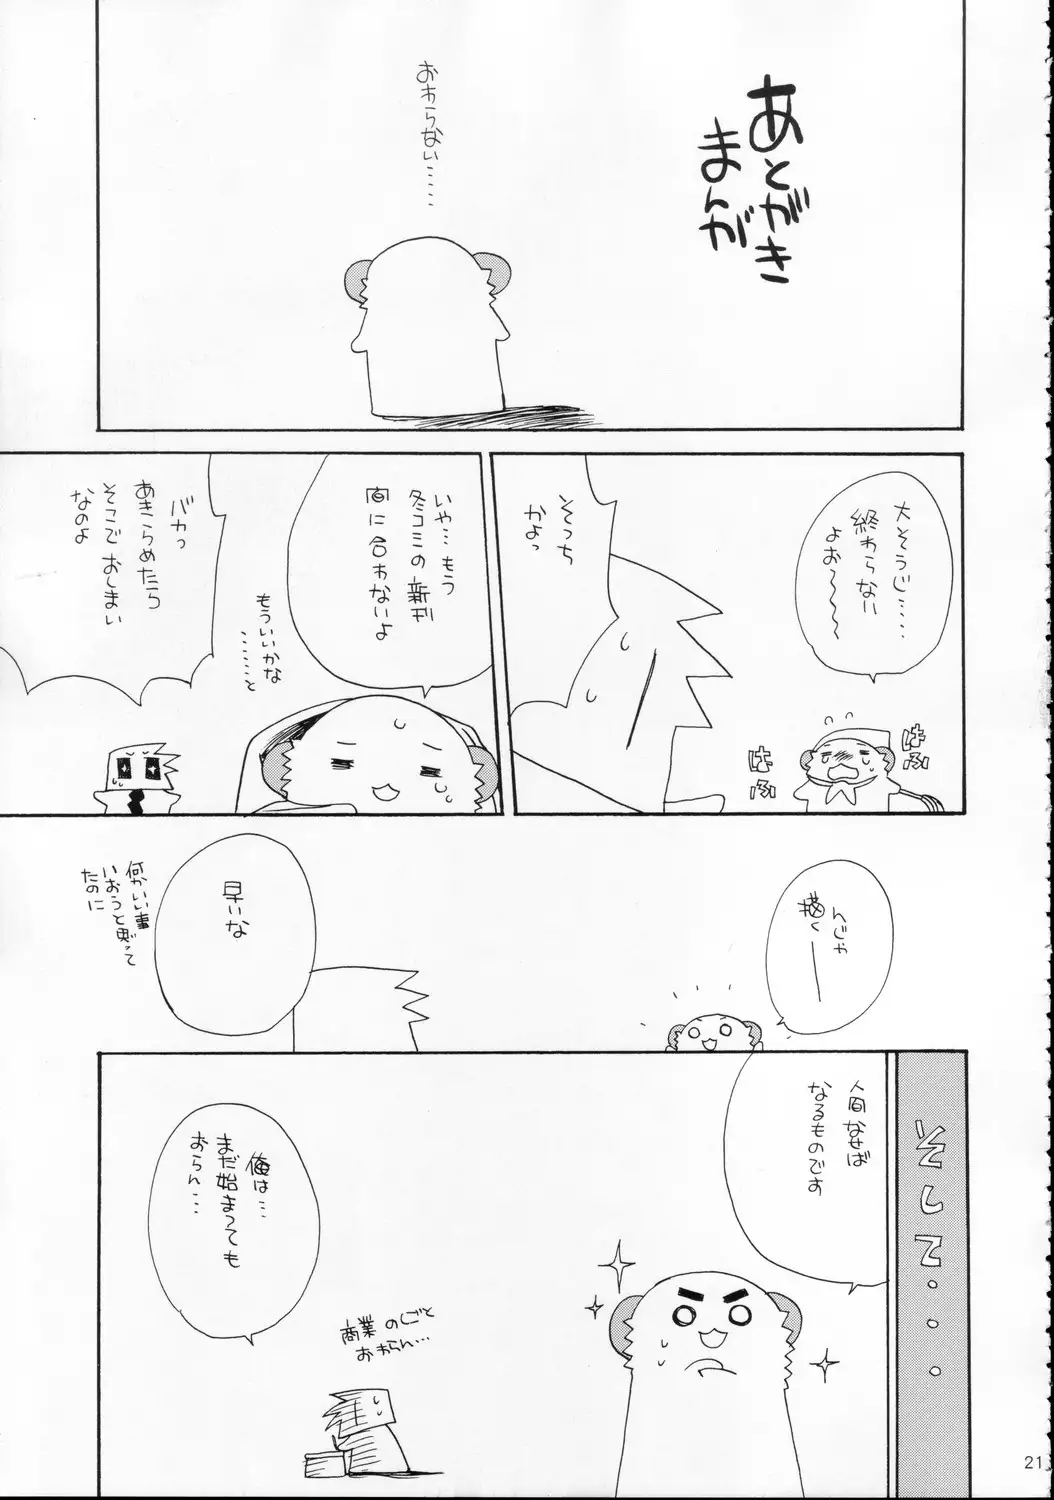 あとがき
まんが
おわらない……
大そうじ……
終わらない
よぉ〜〜〜
はふ
はふ
そっち
かよっ
いや…もう
冬コミの新刊
間に合わないよ
もういいかな
……と
バカっ
あきらめたら
そこでおしまい
なのよ
んじゃ
描くー
早いな
何かいい事
いおうと思って
たのに
そして・・・
人間なせば
なるものです
俺は…
まだ始まっても
おらん…
商業のしごと
おわらん…
21